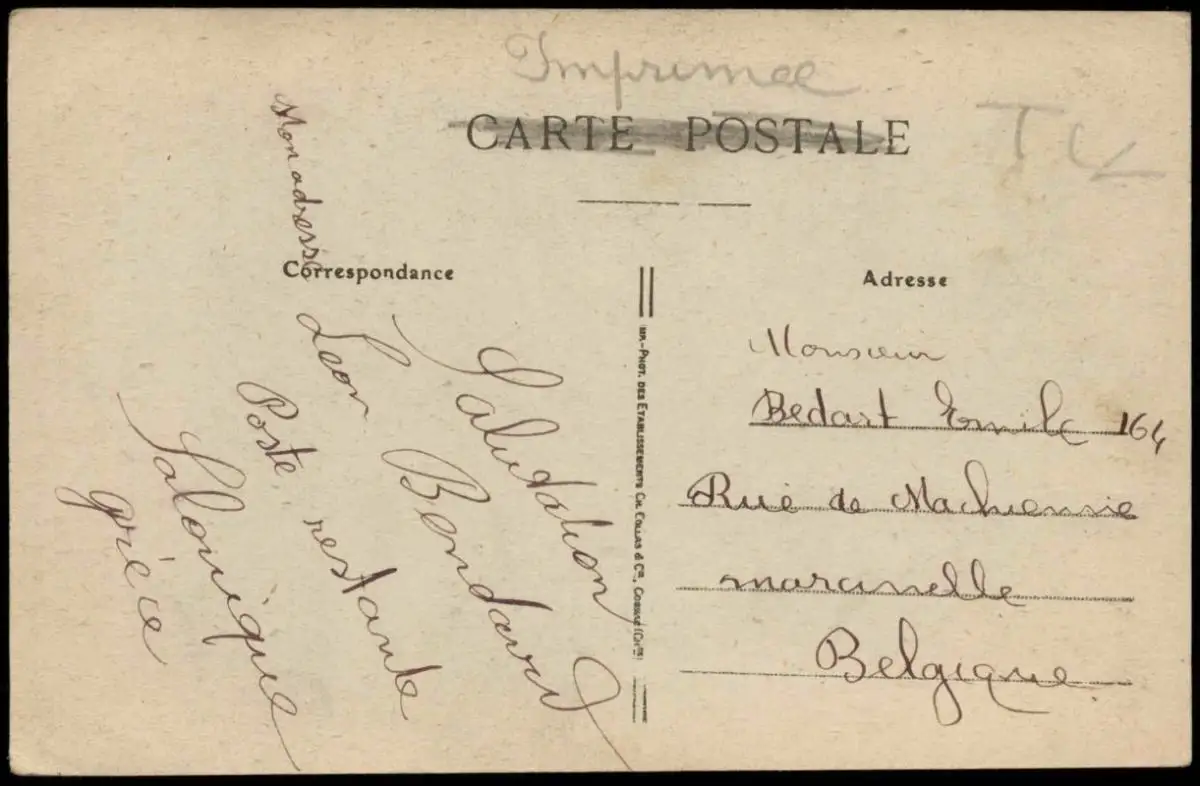 Imprimée
CARTE POSTALE
Correspondance
Mon adresse
Salutation
Leon Bondard
Poste restante
Salonique
grèce
IMP.-PHOT. DES ÉTABLISSEMENTS CH. COLLAS & Cie, COGNAC (Chte)
Adresse
Monsieur
Bedart Emile 164
Rue de Machiennie
marcinelle
Belgique